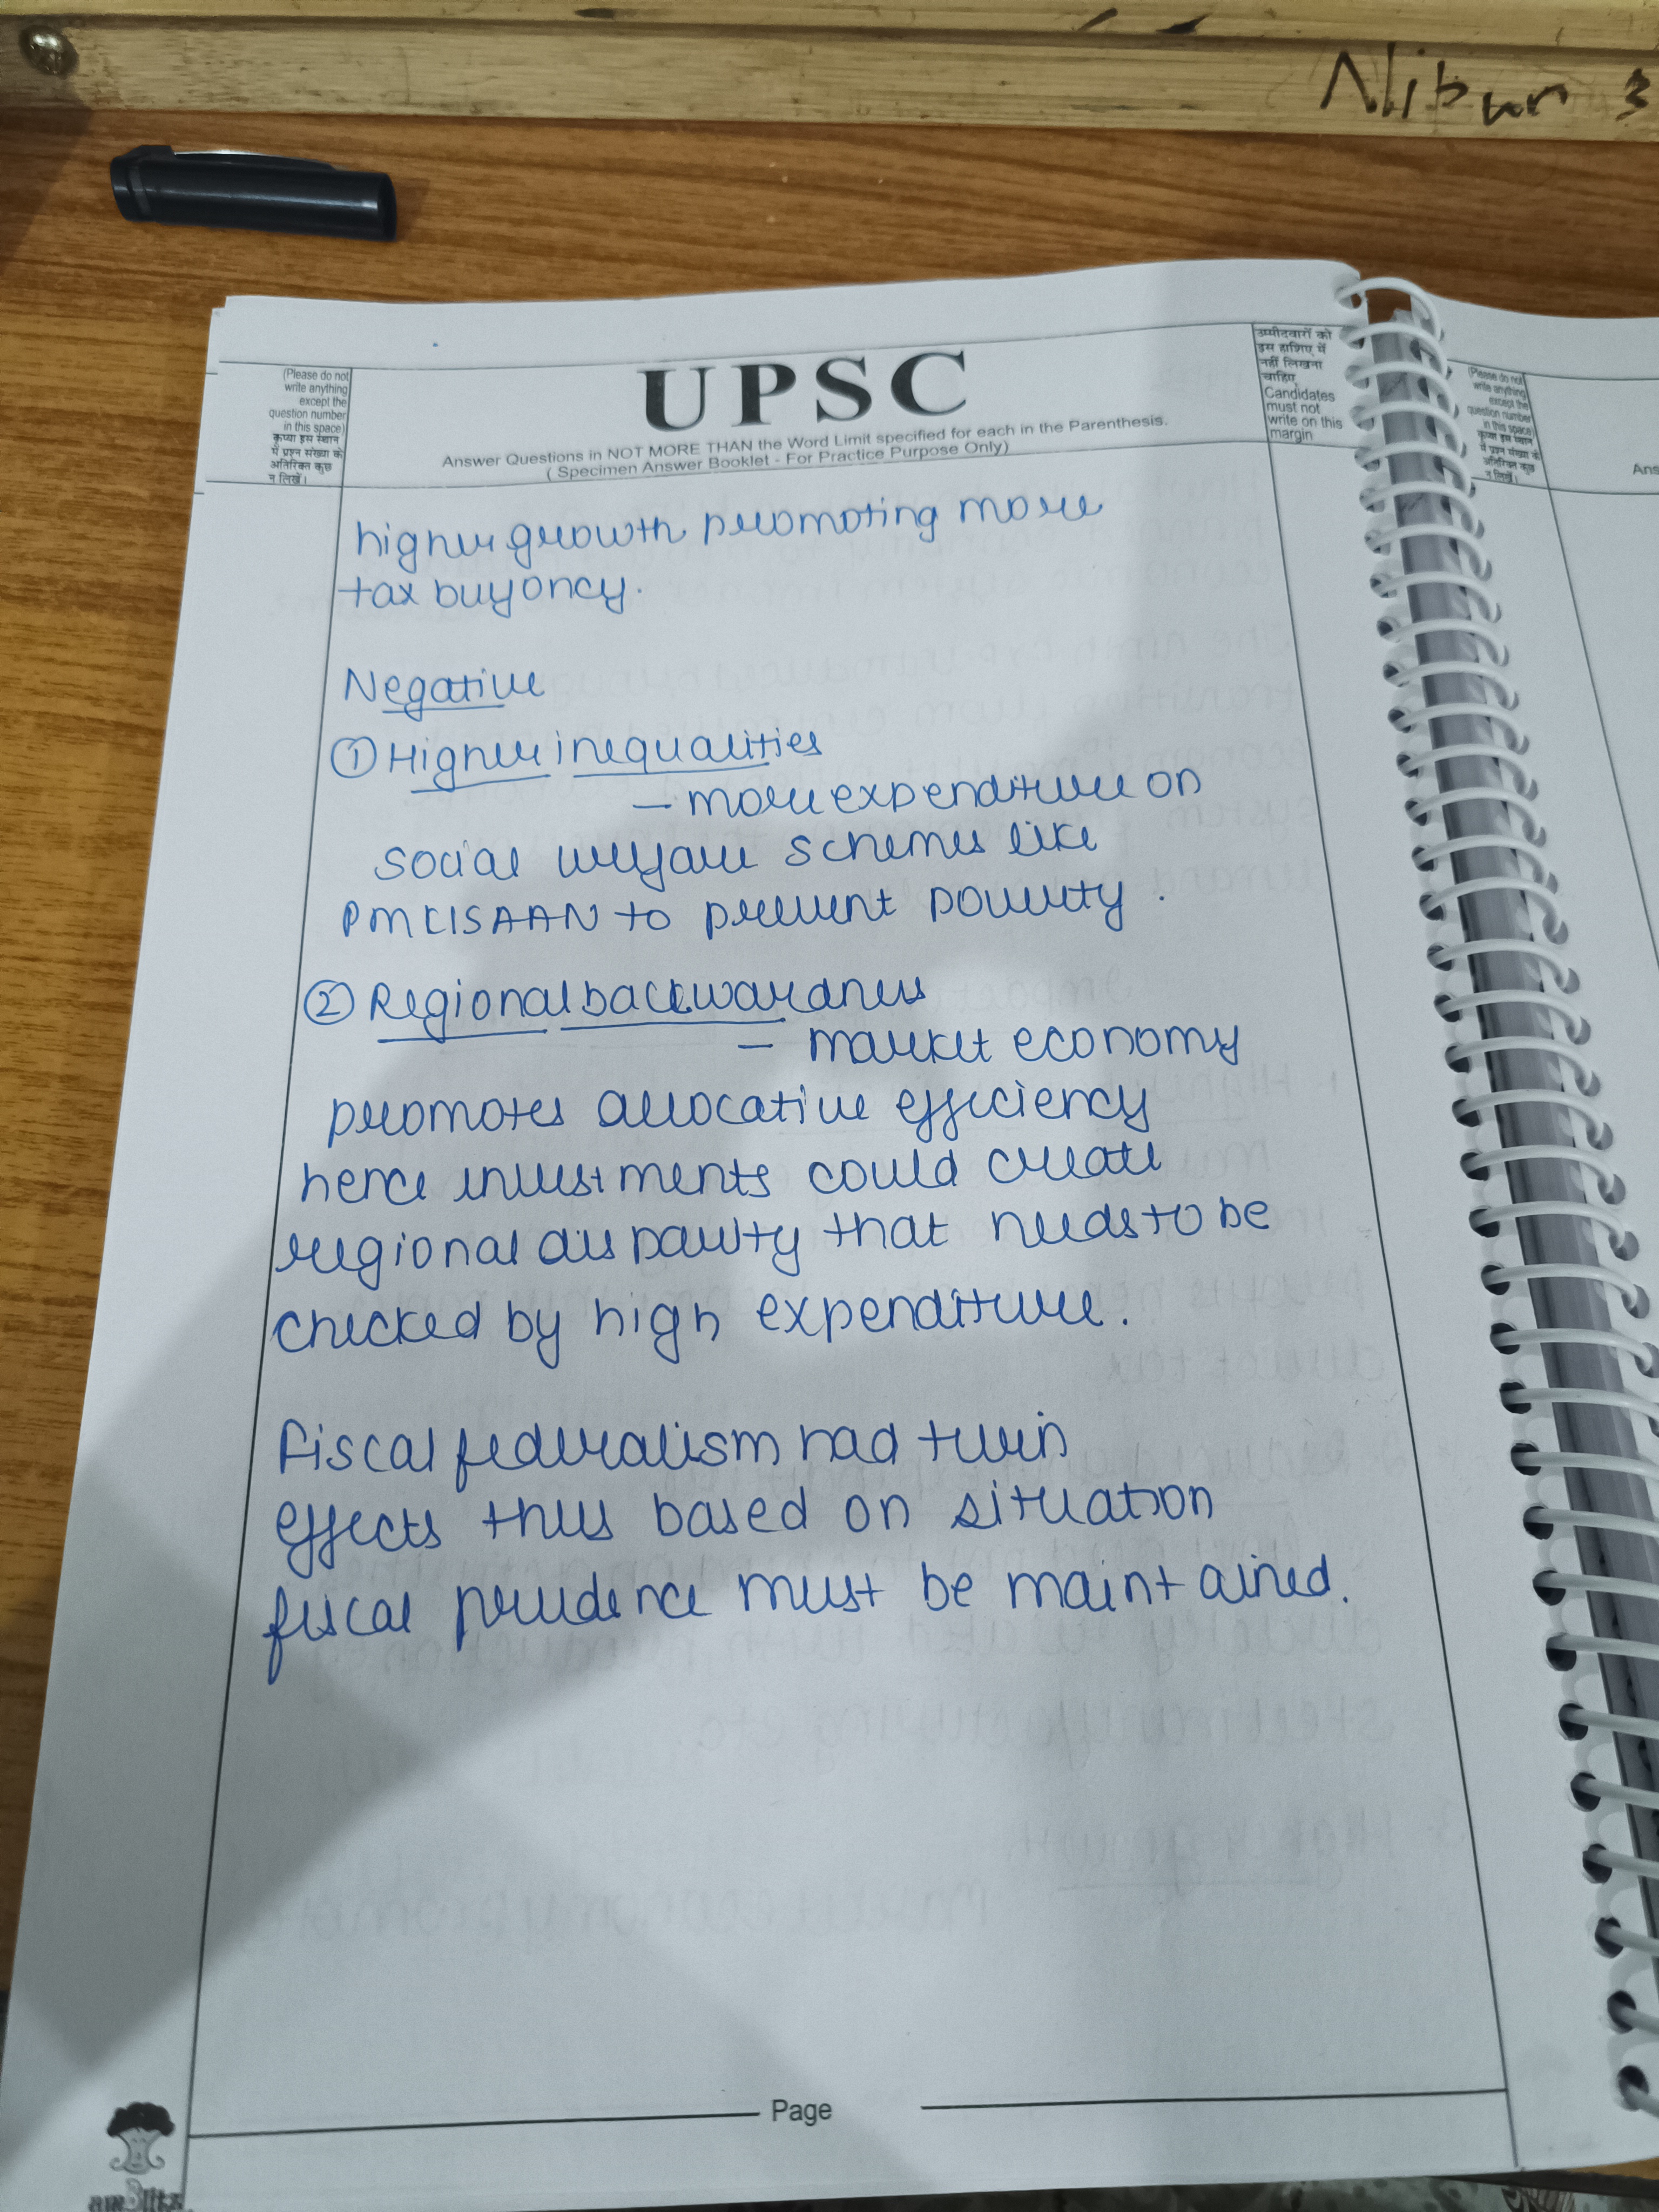 Nibun 3
(Please do not
write anything
except the
question number
in this space)
कृप्या इस स्थान
में प्रश्न संख्या के
अतिरिक्त कुछ
न लिखें।
UPSC
Answer Questions in NOT MORE THAN the Word Limit specified for each in the Parenthesis.
( Specimen Answer Booklet - For Practice Purpose Only)
उम्मीदवारों को
इस हाशिए में
नहीं लिखना
चाहिए
Candidates
must not
write on this
margin
(Please do not
write anything
except the
question number
in this space)
कृप्या इस स्थान
में प्रश्न संख्या के
अतिरिक्त कुछ
न लिखें।
Ans
higher growth promoting more
tax buyoncy.
Negative
① Higher inequalities
– more expenditure on
social welfare schemes like
PMKISAAN to prevent poverty.
② Regional backwardness
– market economy
promotes allocative efficiency
hence investments could create
regional disparity that needs to be
checked by high expenditure.
Fiscal federalism had twin
effects thus based on situation
fiscal prudence must be maintained.
Page